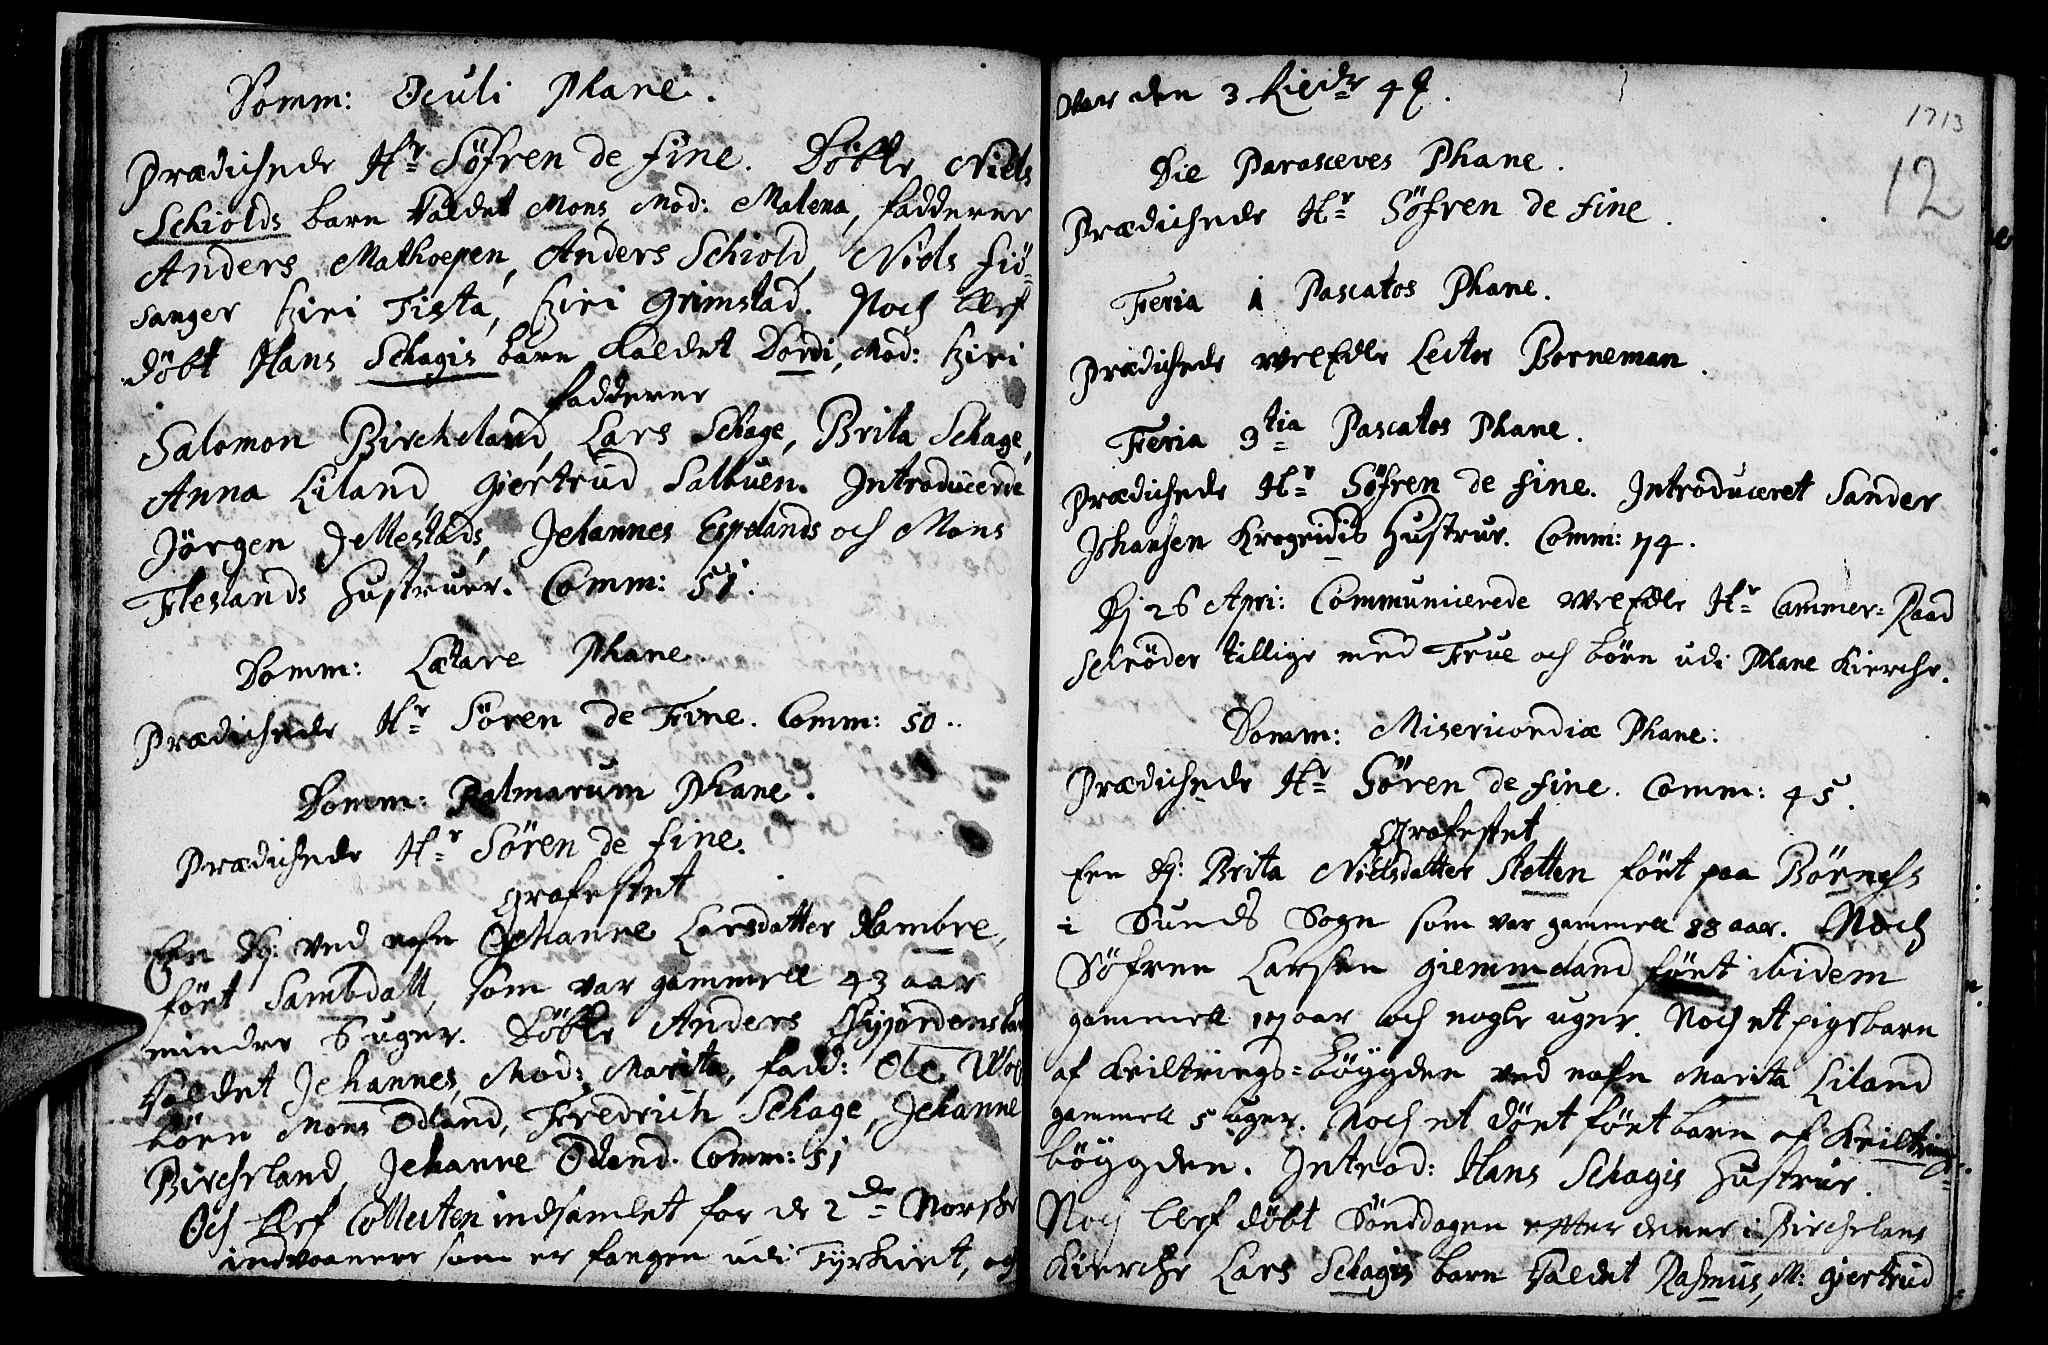 Domm: Oculi Phane.
Prædichede Hr Söfren de fine. Döbte Niels
Schiolds barn kaldet Mons, Mod: Malena, fadderne
Anders Mathopen, Anders Schiold, Niels fiö-
sanger Kiri Tista, Kiri Grimstad. Noch blef
döbt Hans Schagis barn kaldet Dordi, Mod: Kiri
fadderne
Salomon Bircheland, Lars Schage, Brita Schage,
Anna Liland, Giertrud Salbuen. Introducerde
Jörgen Jellestads, Johannes Espelands och Mons
Fleslands Hustruer. Comm: 51.
Domm: Lætare Phane.
Prædichede Hr Sören de Fine. Comm: 50.
Domm: Palmarum Phane.
Prædichede Hr Sören de fine.
Grafestet
Een Dj: ved nafn Johanne Larsdatter Hambre,
fört Sambdall, som var gammell 43 aar
mindre 6 uger. Döbte Anders
kaldet Johannes, Mod: Marita, fadd: Ole
börn Mons Ödland, Fredrich Schage, Johanne
Bircheland, Johanne Ödland. Comm: 51
Och blef Collecten indsamlet for de 2de Norske
indvaanere som er fangen udi Tyrkiet, og
var den 3 Rixdr 4 ß.
1713
12
Die Parasceves Phane.
Prædichede Hr Söfren de fine.
Feria 1 Pascatos Phane.
Prædichede velEdle Lector Borneman.
Feria 3tia Pascatos Phane.
Prædichede Hr Söfren de fine. Introduceret Sander
Johansen Krogeidis Hustrue. Comm: 74.
Dj 26 Apri: Communicerede velEdle Hr Cammer-Raad
Selröder tillige med Frue och börn udi Phane Kierche.
Domm: Misericordiæ Phane:
Prædichede Hr Sören de fine. Comm: 45.
Grafestet
Een Dj: Brita Nielsdatter Stetten fört paa Börnes
i Sunds Sogn som var gammell 88 aar. Noch
Söfren Larsen Giemmeland fört ibidem
gammell 17 aar och nogle uger. Noch et pigebarn
af Keiltrings-böygden ved nafn Marita Liland
gammell 5 uger. Noch et dödt fört barn af Keiltrings-
böygden. Introd: Hans Schagis Hustrue.
Noch blef döbt Sönsdagen efter denne i Birchelans
Kierche Lars Schagis barn kaldet Rasmus, M: Giertrud